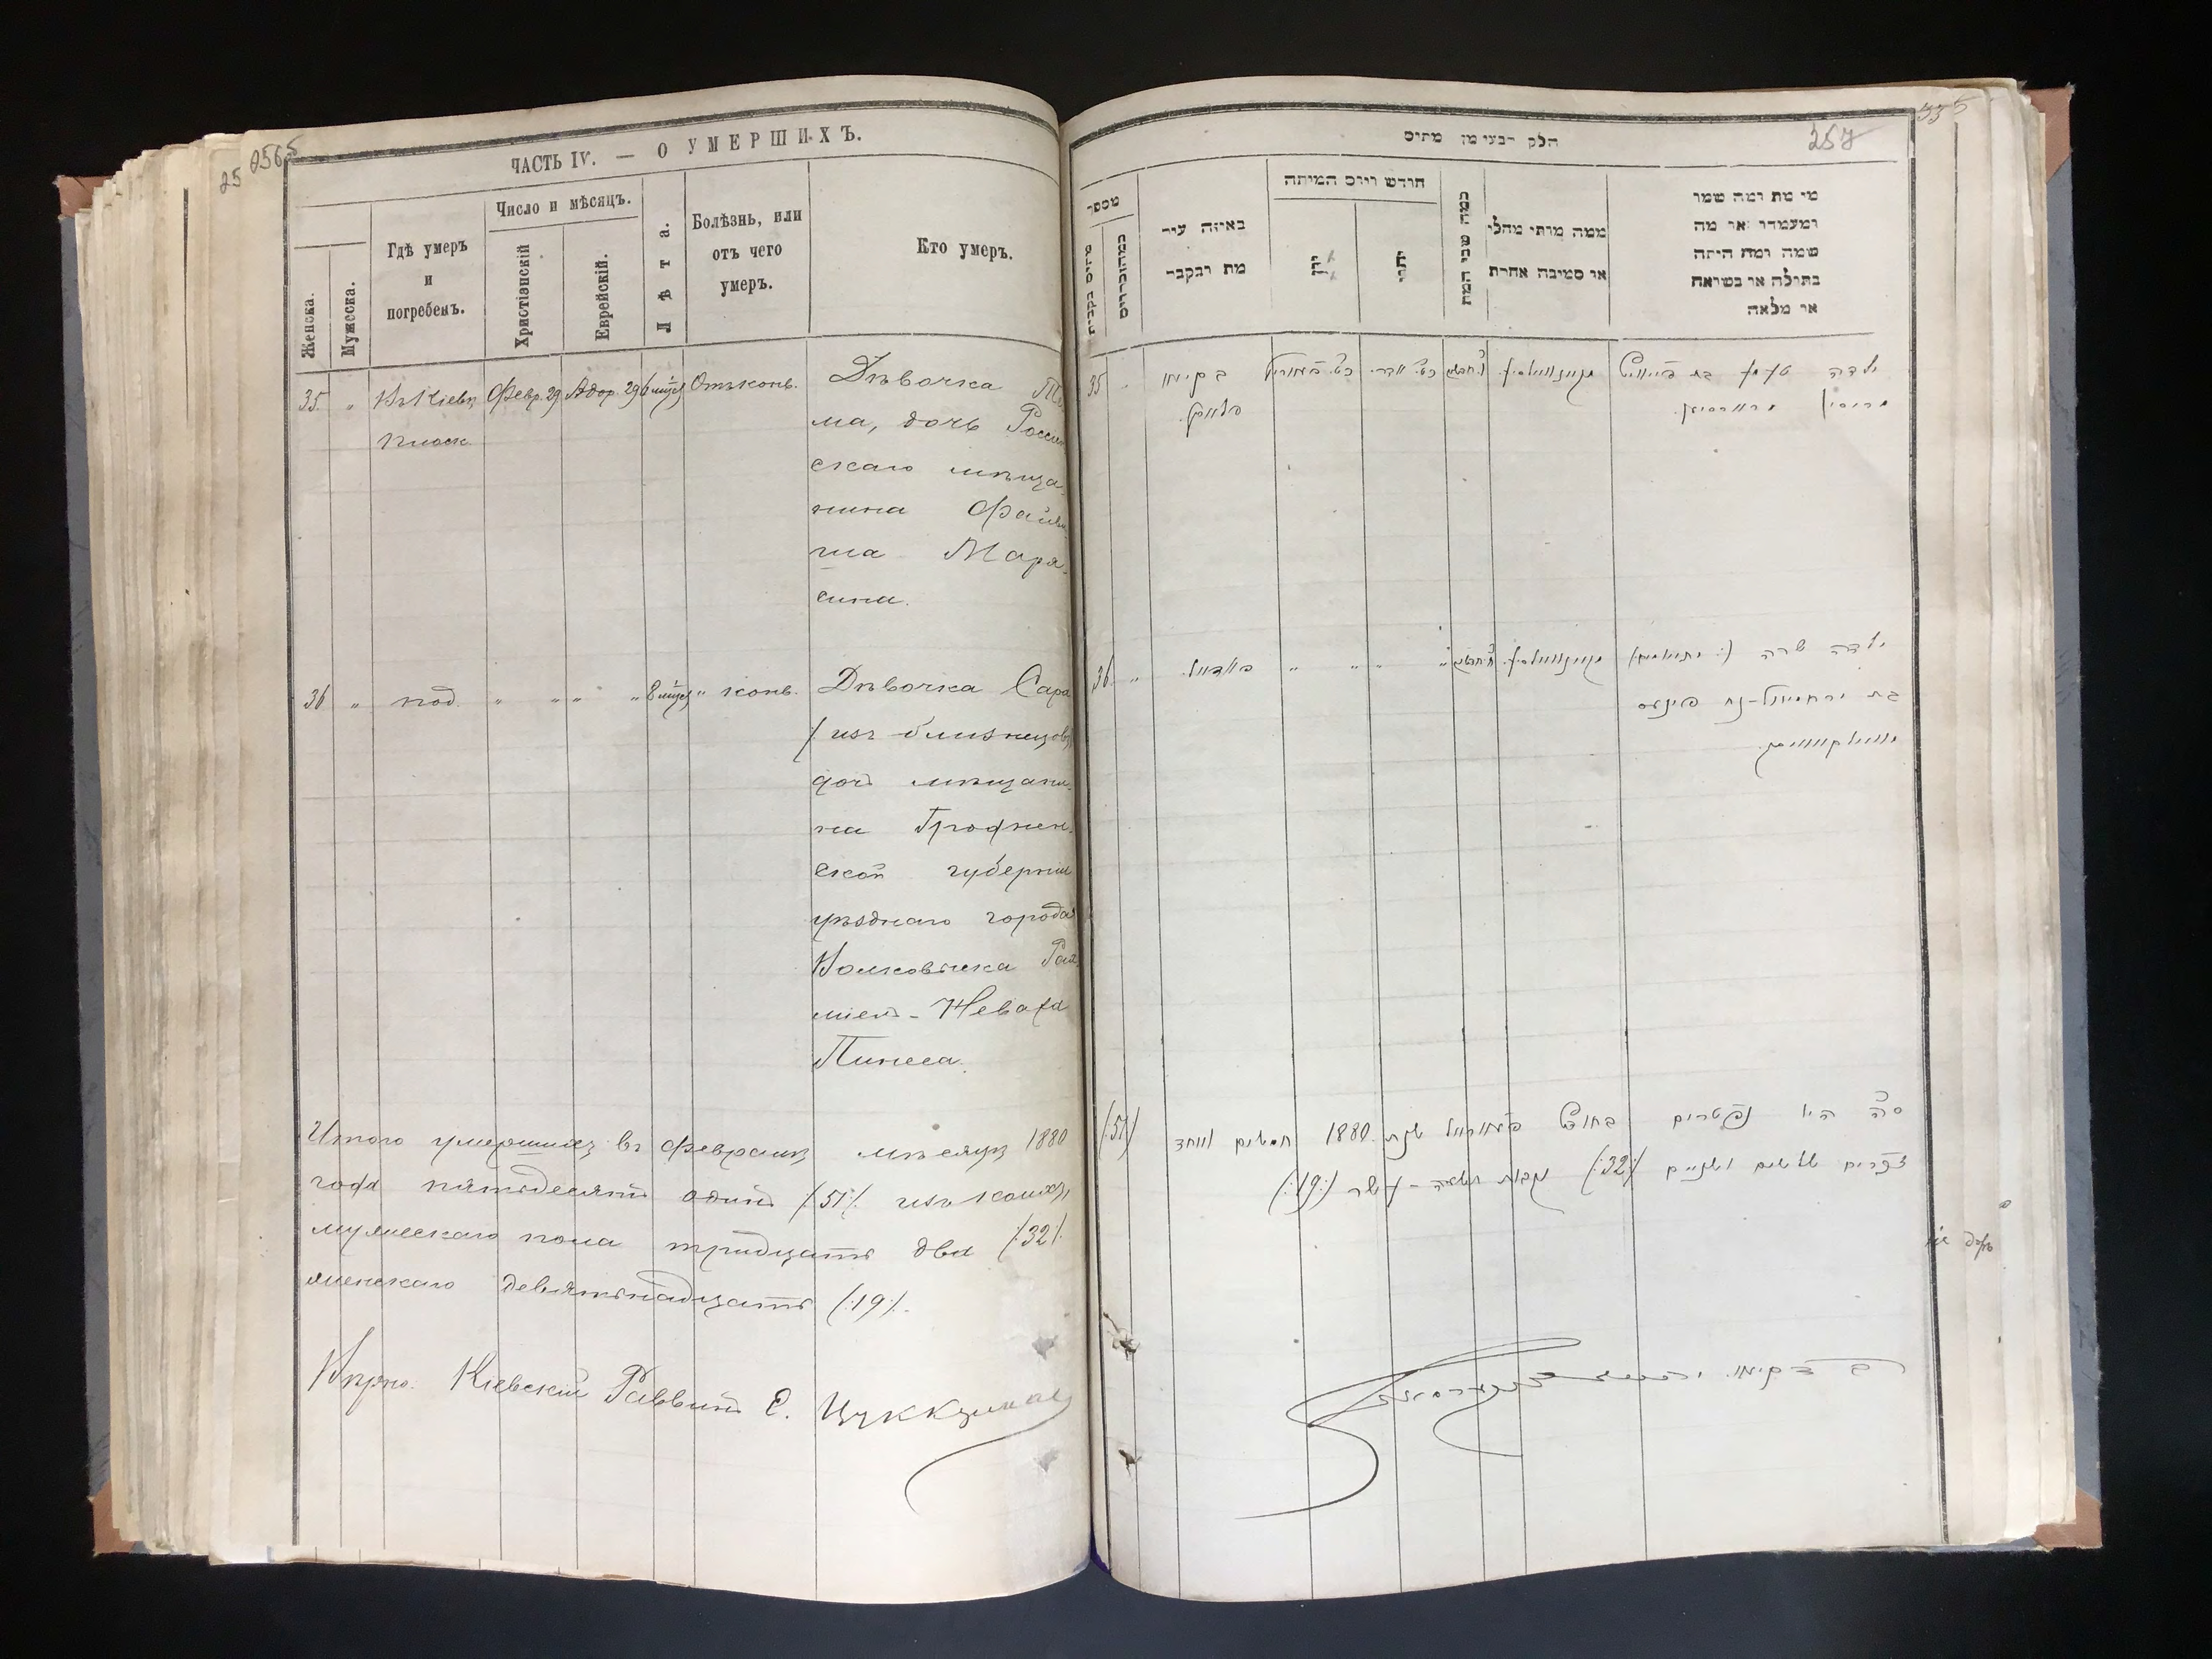 ЧАСТЬ IV. — О УМЕРШИХЪ.
Женска.
Мужеска.
Гдѣ умеръ
и
погребенъ.
Число и мѣсяцъ.
Христіанскій
Еврейскій.
Лѣта.
Болѣзнь, или
отъ чего
умеръ.
Кто умеръ.
35. „ Въ Кіевѣ Февр. 29 Адор. 29 6 мѣся Отъ конв. Дѣвочка
Плоск.
ма, дочь Россіен
скаго мѣща-
нина Файви
ша Маря-
сина.
36 „ под. „ „ „ „ 8 мѣся „ конв. Дѣвочка Сара
/: изъ близнецовъ
дочь мѣщани-
на Гроднен-
ской губерніи
уѣзднаго города
Волковыска
міель-Неваха
Пинеса.
Итого умершихъ въ Февралѣ мѣсяцѣ 1880
года пятьдесятъ одинъ /:51:/ изъ коихъ,
мужескаго пола тридцать два /:32:/
женскаго девятьнадцать /:19:/.
Вѣрно. Кіевскій Раввинъ Е. Цуккерман
257
חלק רבעי מן מתים
מספר
באיזה עיר
מת ונקבר
חודש ויום המיתה
כמה שני המת
ממה מותי מחלי
או סמיבה אחרת
מי מת ומה שמו
ומעמדו או מה
שמה ומה היתה
בתולה או בשואה
או מלאה
35 „
36 „
ילדה שרה
בת ירחמיאל-נח פינעס
(:51:) סה״כ היו נפטרים בחודש פעווראל שנת 1880 חמשים ואחד
זכרים שלשים ושניים (:32:) נקבות תשעה-עשר (:19:)